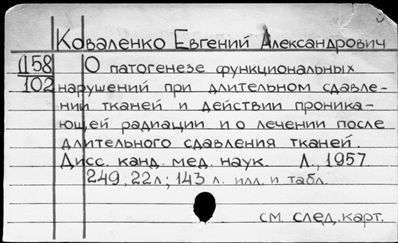 Коваленко Евгений Александрович
1158 О патогенезе функциональных
102 нарушений при длительном сдавле-
нии тканей и действии проника-
ющей радиации и о лечении после
длительного сдавления тканей.
Дисс. канд. мед. наук. Л., 1957
249, 22л; 143 л. илл. и табл.
см. след. карт.